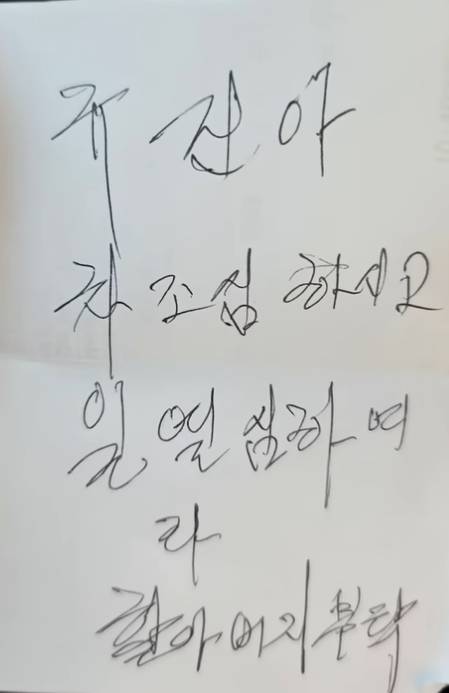 주진아
차 조심 하시요
일 열심하여
라
할아버지 부탁